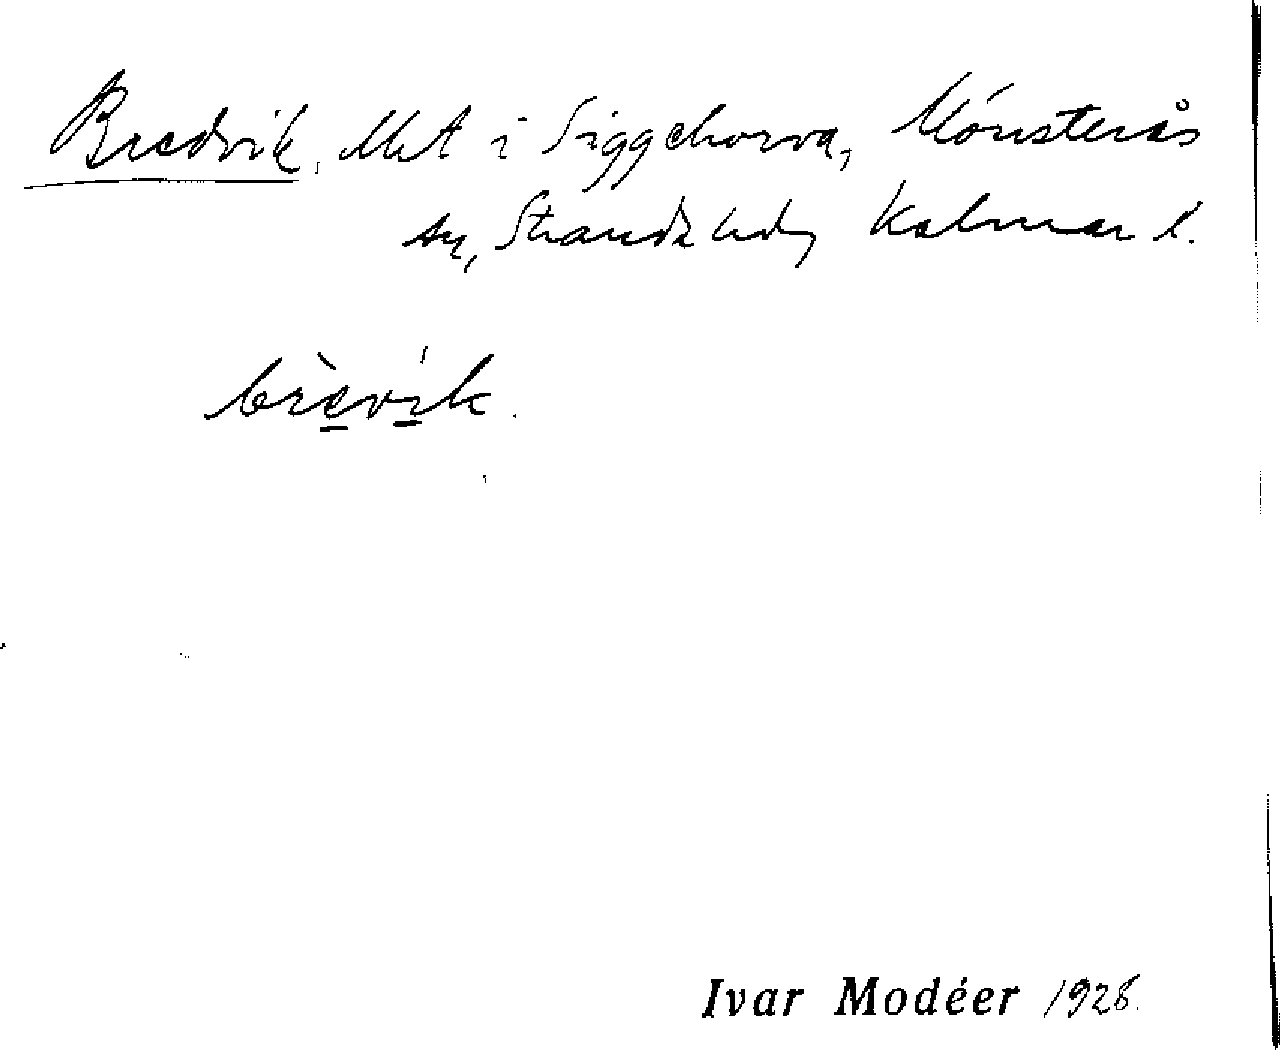 Bredvik, i Siggehorva, Mönsterås
sn, Stranda hd, Kalmar l.
brèvík.
Ivar Modéer 1928.